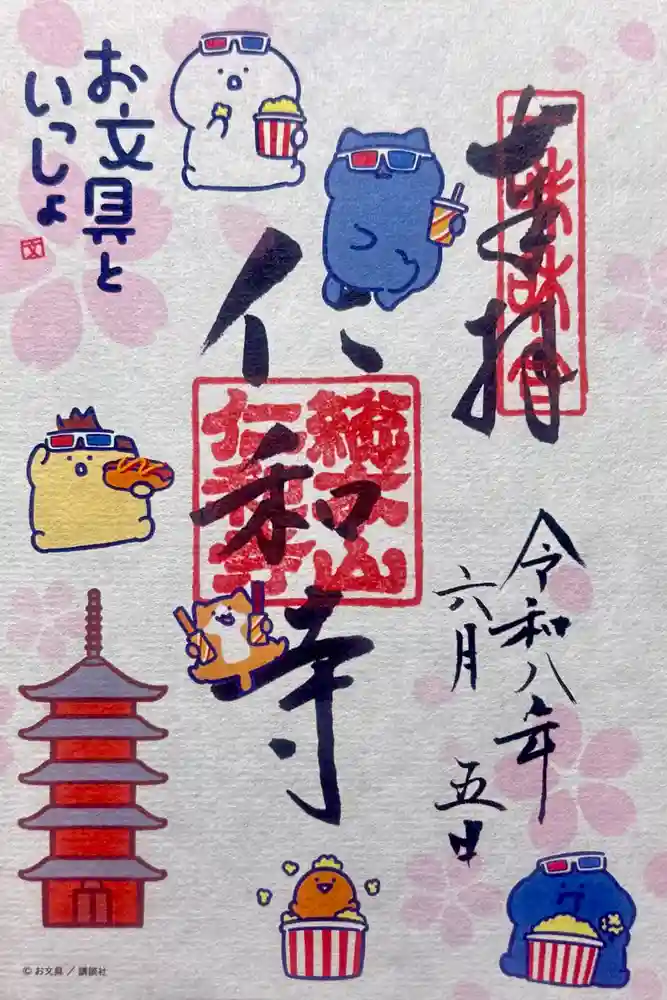 奉拝
令和八年
六月
五日
仁和寺
お文具と
いっしょ
文
© お文具 / 講談社